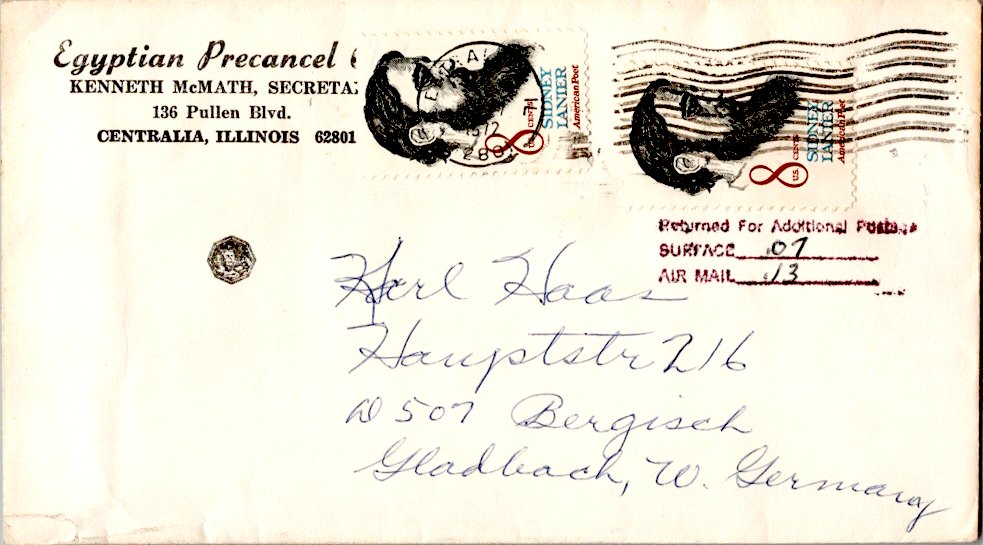 Egyptian Precancel
KENNETH McMATH, SECRETA
136 Pullen Blvd.
CENTRALIA, ILLINOIS 62801
8 CENTS
U.S.
SIDNEY
LANIER
American Poet
1972
8 CENTS
U.S.
SIDNEY
LANIER
American Poet
Returned For Additional Postage
SURFACE .07
AIR MAIL .13
Karl Haas
Hauptstr 216
D 507 Bergisch
Gladbach, W. Germany